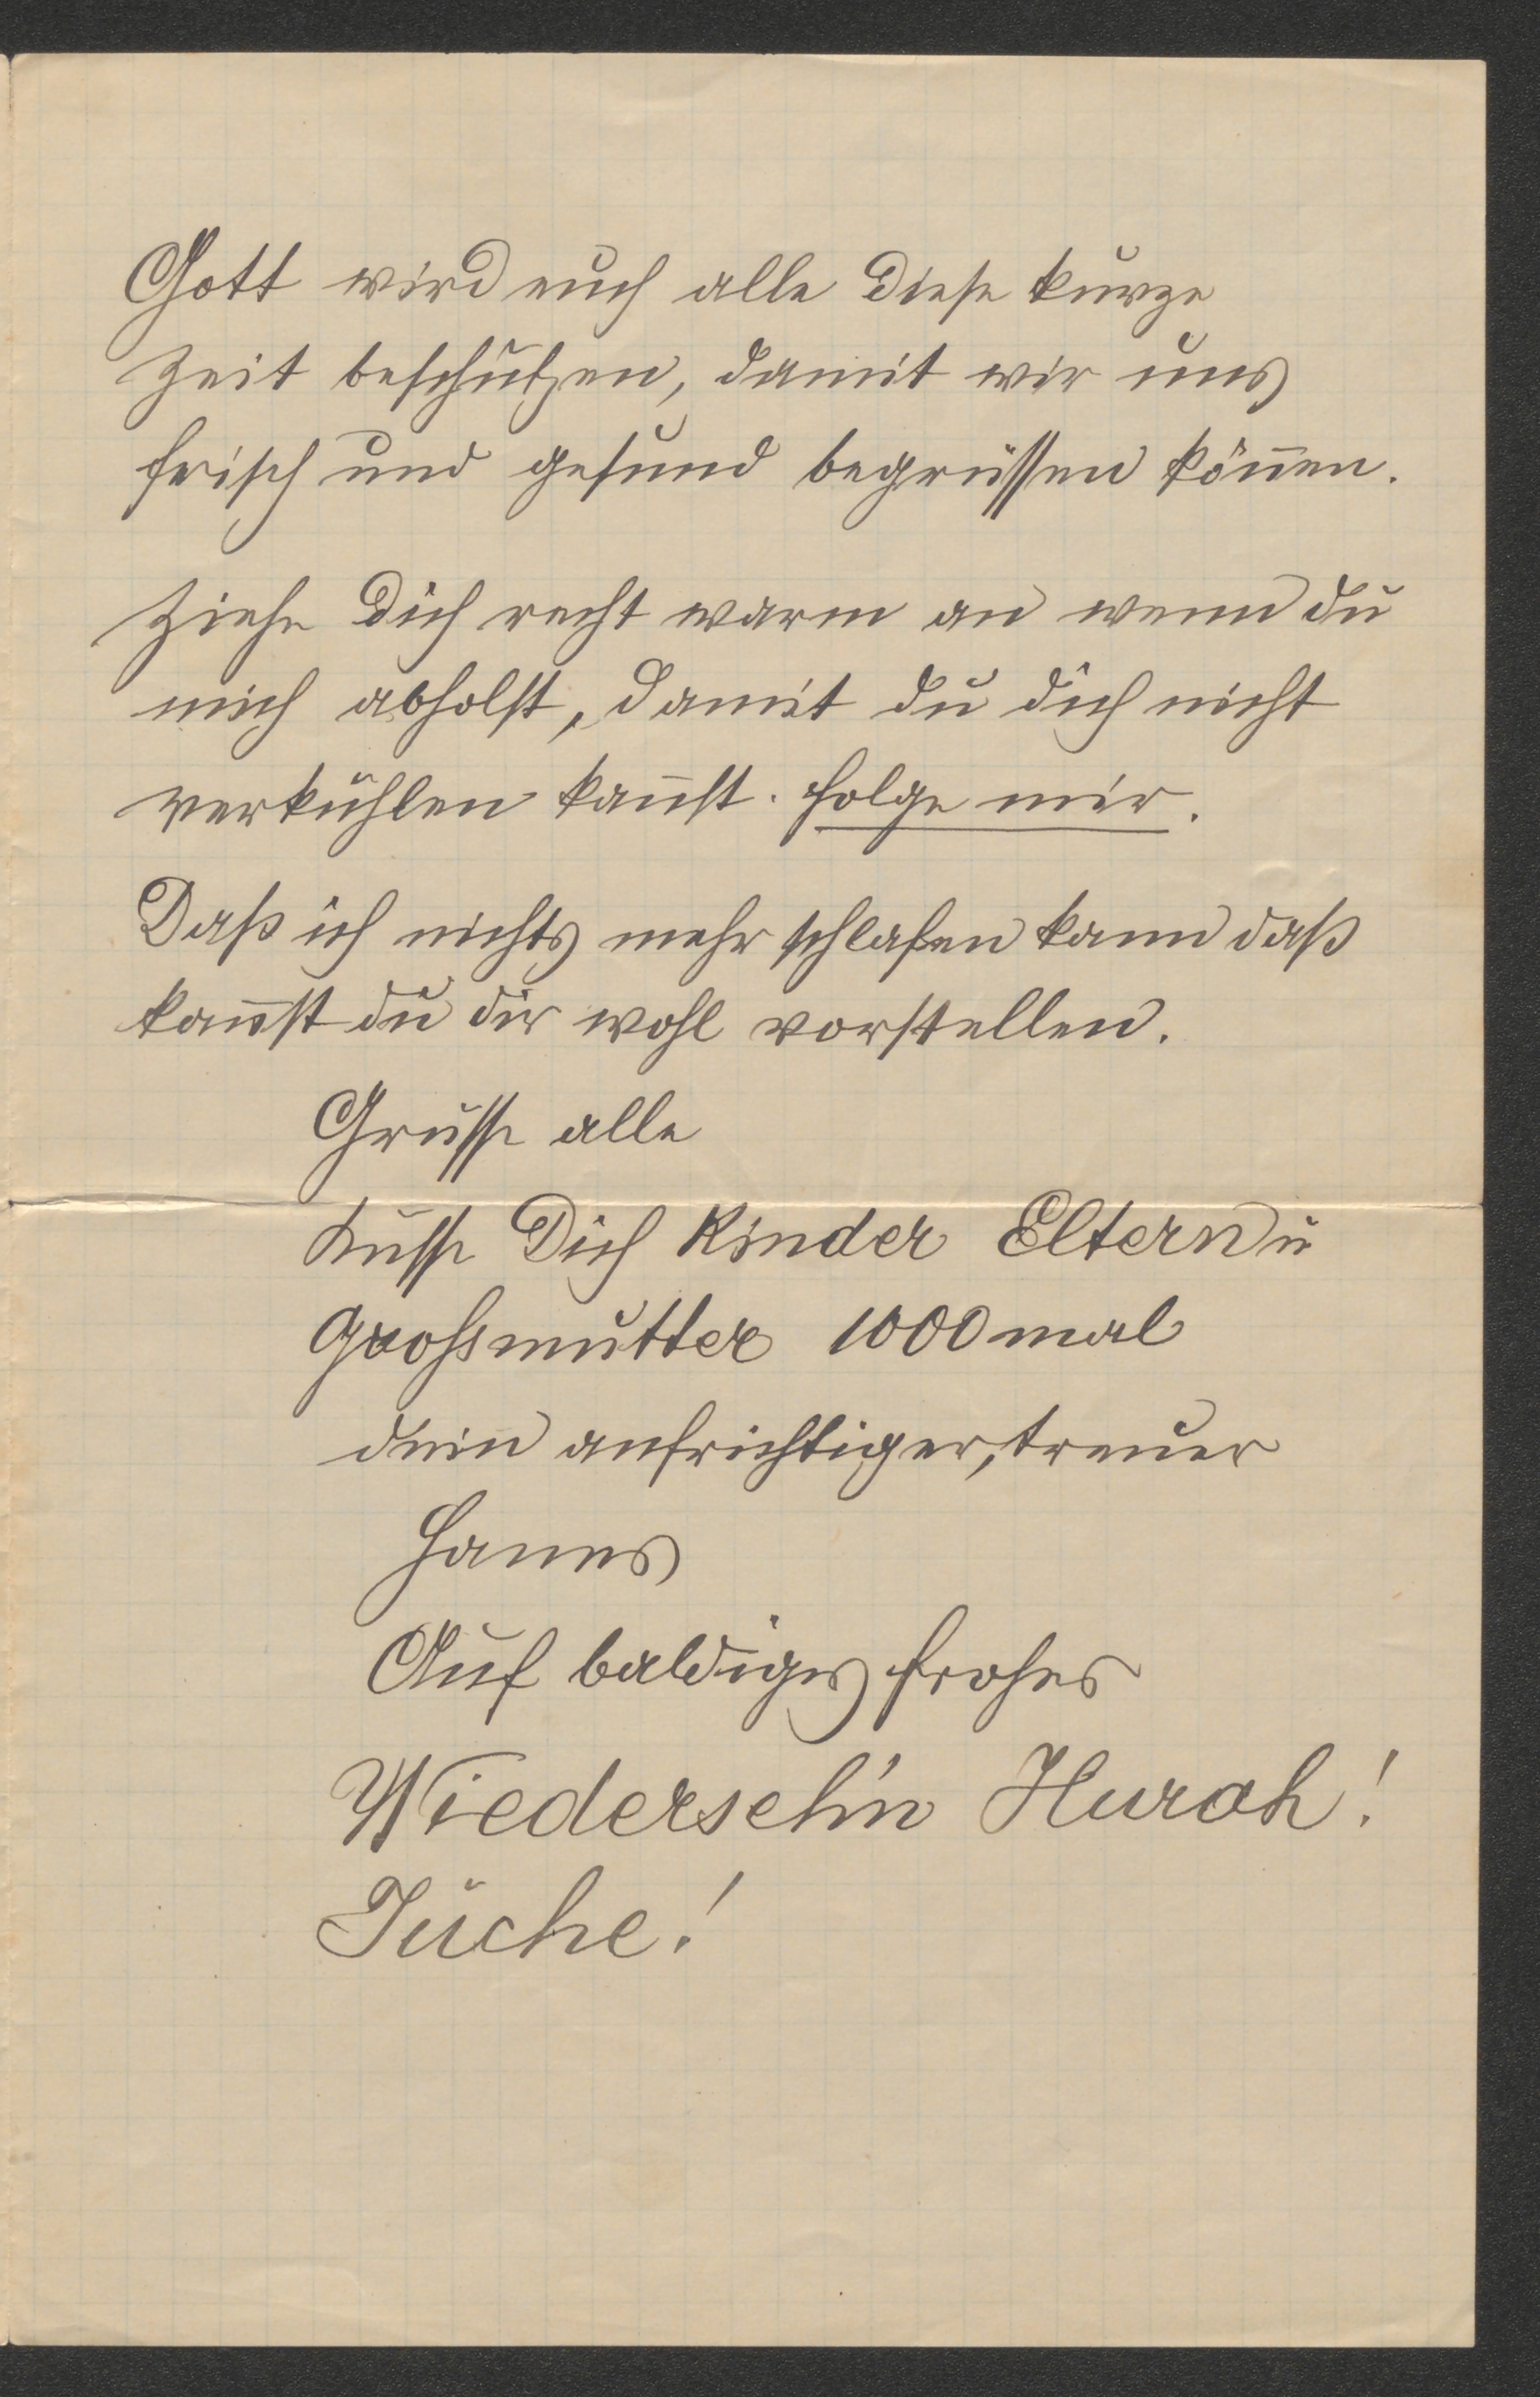 Gott wird euch alle diese kurze
Zeit beschützen, damit wir uns
frisch und gesund begrüssen kön̄en.
Ziehe Dich recht warm an wenn du
mich abholst, damit du dich nicht
verkühlen kan̄st. Folge mir.
Daß ich nichts mehr schlafen kann daß
kan̄st du dir wohl vorstellen.
Grüsse alle
Küsse Dich Kinder Eltern u
Großmutter 1000mal
dein aufrichtiger, treuer
Hanns
Auf baldiges frohes
Wiederseh'n Hurah!
Juche!